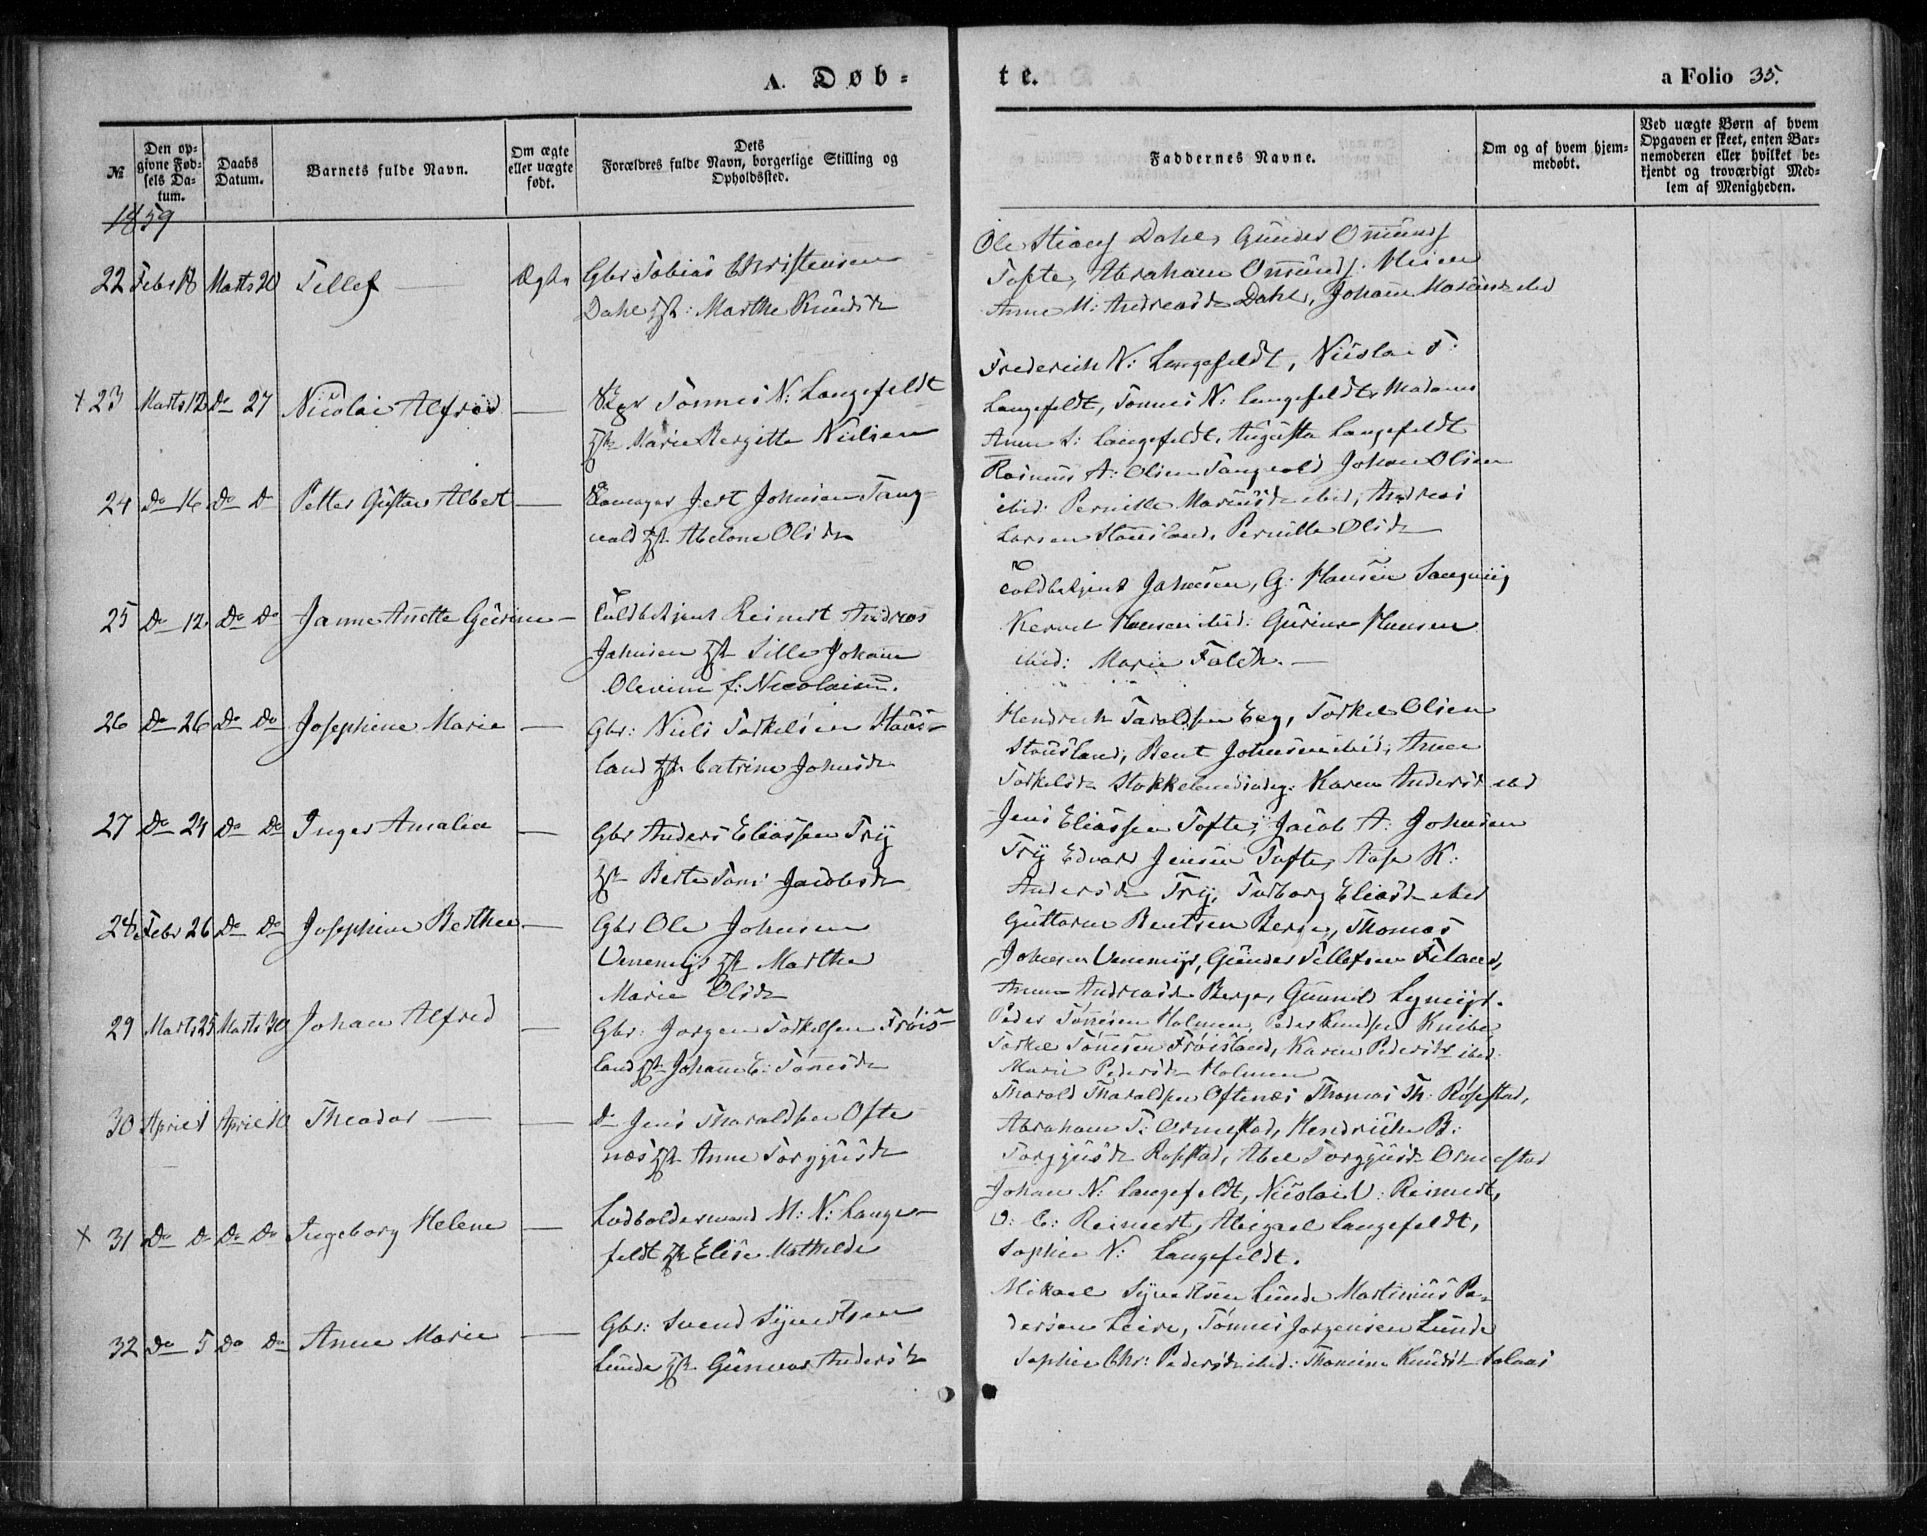 A. Døb-
te.
a Folio 35.
№
Den op-
givne Fød-
sels Da-
tum.
Daabs
Datum.
Barnets fulde Navn.
Om ægte
eller uægte
født.
Dets
Forældres fulde Navn, borgerlige Stilling og
Opholdssted.
Faddernes Navne.
Om og af hvem hjem-
medøbt.
Ved uægte Børn af hvem
Opgaven er skeet, enten Bar-
nemoderen eller hvilket be-
kjendt og troværdigt Med-
lem af Menigheden.
1859
22 Febr 18 Marts 20 Tellef — Ægte Gbr: Tobias Christensen
Dahl Hst: Marthe Knudsd
Ole Dahl, Gunder Omunds
Tofte, Abraham Omunds.
Anne M: Andreasd Dahl, Johan ibid
+ 23 Marts 12 Do 27 Nicolai Alfred — Tønnes N: Langefeldt
Hst Marie Bergitte Nielsen
Frederich N: Langefeldt, Nicolai T:
Langefeldt, Tønnes N: Langefeldt, Madame
Anne S: Langefeldt, Augusta Langefeldt
24 Do 16 Do D Petter Gustav Albert — Jert Johnsen Tang-
vald Hst. Abelone Olsd
Rasmus A: Olsen Tangvald Johan Olsen
ibid: Pernille ibid, Andreas
Larsen Stousland, Pernille Olsd
25 Do 12 Do Do Janne Anette Gurine — Toldbetjent Reinert Andreas
Jahnsen Hst Sille Johanne
Olevine f: Nicolaisen.
Toldbetjent Jahnsen, G. Hansen Sangvig
Hansen ibid: Gurine Hansen
ibid: Marie Falch. —
26 Do 26 Do Do Josephine Marie — Gbr: Niels Torkelsen Stous-
land Hst. Catrine Johnsd
Hendrich Taraldsen Eeg, Torkel Olsen
Stousland, Bent Johnsen ibid, Anne
Torkelsd Karen Andersd ibid
27 Do 24 Do Do Inger Amalia — Gbr Anders Eliassen Try
Hst Berte Tomi Jacobsd
Jens Eliassen Tofte, Jacob A: Johnsen
Try Edvard Jensen Tofte, Aase K:
Andersd Try, Torborg Eliasd ibid
28 Febr 26 Do Do Josephine Berthea — Gbr Ole Johnsen
Venemyr Hst Marthe
Marie Olsd
Guttorm Bentsen Berge, Thomas
Johnsen Venemyr, Gunder Tellefsen
Anne Andreasd Berge, Gunnild
29 Marts 25 Marts 30 Johan Alfred — Gbr: Jørgen Torkelsen Frøis-
land Hst. Johanne E: Tønesd
Peder Tønesen Holmen, Peder Knudsen Knibe
Torkel Tønesen Frøisland, Karen Pedersd ibid.
Marie Pedersd Holmen
30 April 1 April 10 Theodor — — Do Jens Tharaldsen Ofte
næs Hst Anne Torgjusd
Tharald Tharaldsen Oftenæs Thomas Th: Røsstad,
Abraham T: Ormestad, Hendrikke B:
Torgjusd Rosstad, Abel Torgjusd Ormestad
x 31 Do D Do Do Ingeborg Helene — Lodsoldermand M: N: Lange-
feldt Hst Elise Mathilde
Johan N: Langefeldt, Nicolai U: Reinert,
O: C: Reinert, Abigael Langefeldt,
Sophie N: Langefeldt.
32 Do 5 Do Do Anne Marie — Gbr: Svend Syvertsen
Lunde Hst. Gunvor Andersd
Mikael Syvertsen Lunde Martinius Pe-
dersen Leire, Tønnes Jørgensen Lunde
Sophie Chr: Pedersd ibid: Thomine Knudsd